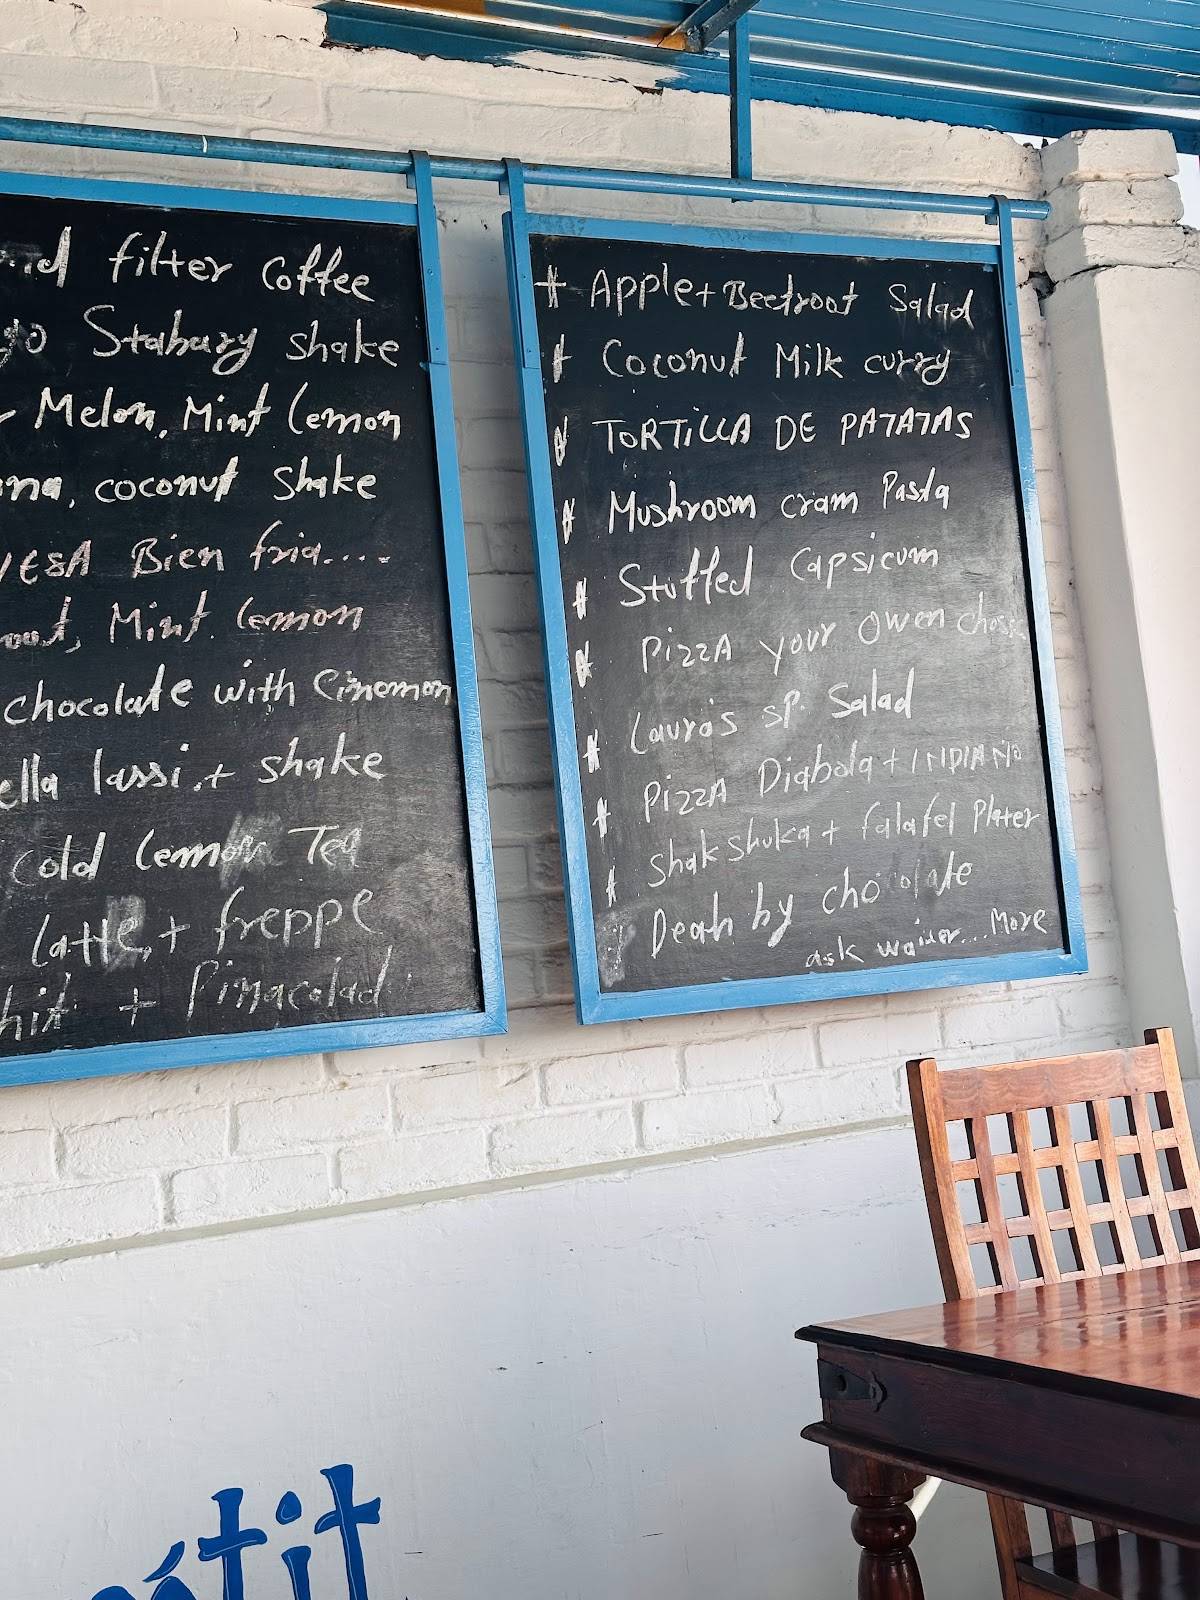 filter coffee
Stabury shake
Melon, Mint Lemon
coconut shake
Bien fria....
Mint. Lemon
chocolate with Cinemon
lassi.+ shake
cold Lemon Tea
Latte,+ freppe
+ Pinacolad
# Apple+Beetroot Salad
# Coconut Milk curry
# TORTILLA DE PATATAS
# Mushroom cram Pasta
# Stuffed Capsicum
# PizzA your owen
# Laura's sp. Salad
# PizzA Diabola + INDIANO
# Shakshuka + falafel Plater
Deah by chocolate
ask waiter... More
étit